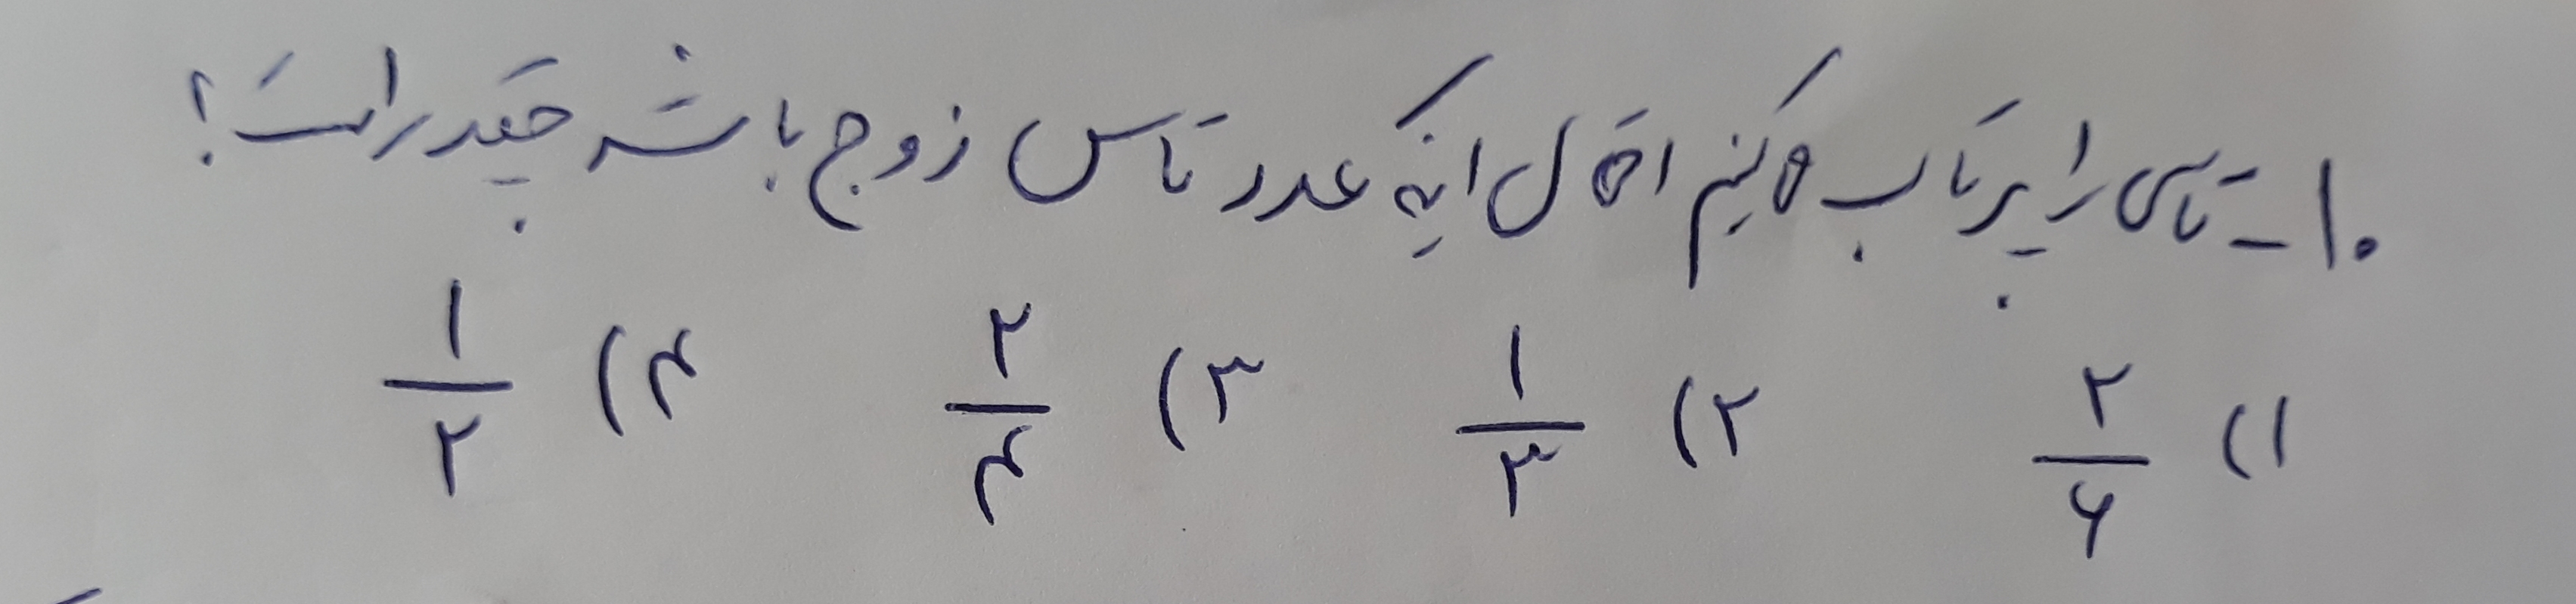 ۱۰ـ تاسی را پرتاب می‌کنیم احتمال اینکه عدد تاس زوج باشد چقدر است؟
۱) ۲/۶ ۲) ۱/۳ ۳) ۲/۴ ۴) ۱/۲